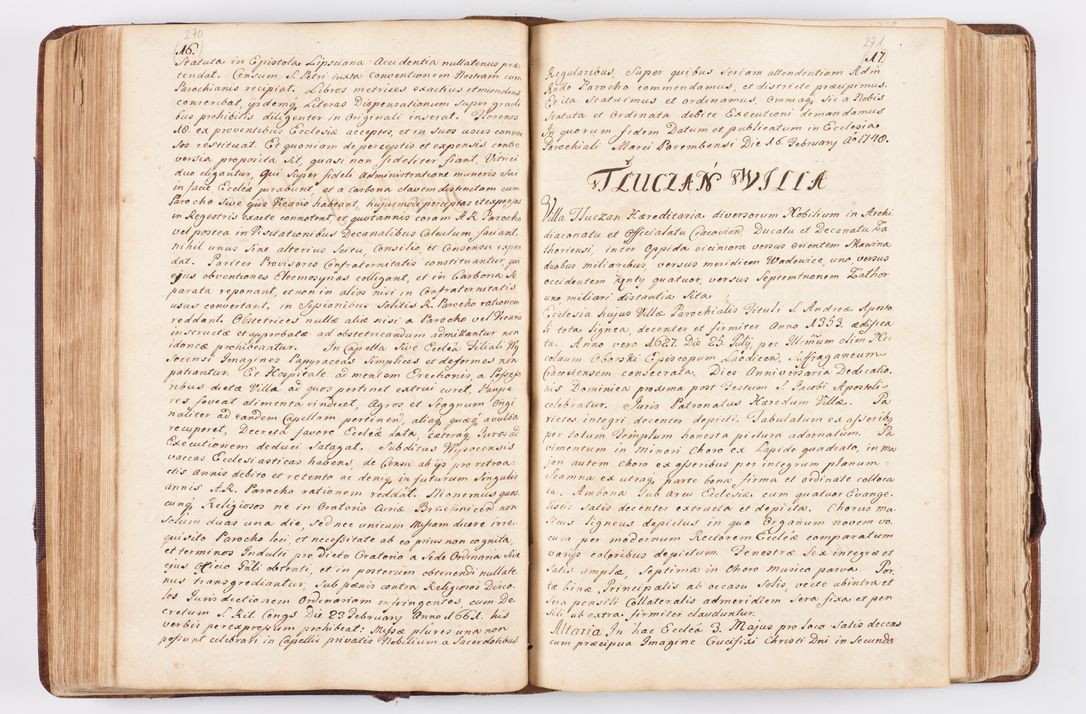 270
16.
Statuta in Epistola Lipsciana Accidentia nullatenus præ
tendat. Censum S. Petri iuxta conventionem Nostram cum
Parochianis recipiat. Libros metrices exactius et mundius
conscribat, ijsdemq Literas Dispensationum super gradi
bus prohibitis diligenter in originali inserat. Florenos
18. ex proventibus Ecclesiæ acceptos, et in suos usus conver
sos restituat. Et quoniam de perceptis et expensis contro
versia proposita sit, quasi non fideliter fiant, Vitrici
duo eligantur, qui super fideli administratione muneris sui
in facie Ecclæ jurabunt et a Carbona clavem distinctam cum
Parocho sive ejus Vicario habeant, hujusmodi perceptas et expensas
in Regestris exacte connotent, et quotannis coram A. R. Parocho
vel postea in Visitationibus Decanalibus Calculum faciant,
nihil unus sine alterius scitu, Consilio, et Consensu expen
dat. Pariter Provisores Confraternitatis constituantur, qui
ejus obventiones Eleemosynas colligant, et in Carbona se
parata reponant, et non in alios nisi in Confraternitatis
usus convertant, in Sessionibus solitis R. Parocho rationem
reddant. Obstetrices nullæ aliæ nisi a Parocho vel Vicario
instructæ et approbatæ ad obstetricandum admittantur non
idoneæ prohibeantur. In Capella sive Ecclesia Filiali Wy
socensi Imagines Papyraceas simplices et deformes non
patiantur. Et Hospitale ad mentem Erectionis, a Possesso
ribus dictæ Villæ ad quos pertinet extrui curet, Paupe
res foveat alimenta vindicet, Agros et Stagnum Origi
naliter ad eandem Capellam pertinen, aliaq quæq avulsa
recuperet, Decreta favore Ecclæ lata, cæteraq Jurta ad
Executionem deduci satagat. Subditus Wysocensis
vaccas Ecclesiasticas habens, de Censu ab ijs pro retroa
ctis annis debito et retento ac deniq in futurum singulis
annis A. R. Parocho rationem reddat. Monemus quos
cunq Religiosos ne in Oratorio Curiæ Brzezinicen non
solum duas una die, sed nec unicum Missam dicere irre
quisito Parocho loci, et necessitate ab eo prius non cognita,
et terminos Indulti pro dicto Oratorio a Sede Ordinaria sive
ejus Officio obtenti, et in posterum obtinendi nullate
nus transgrediantur, sub pænis contra Religiosos Disco
los Jurisdictionem Ordinariam infringentes, cum De
cretum S. Rit. Congs Die 23 February Anno 1661. his
verbis per expressum prohibeat: Missæ plures una non
possunt celebrari in Capellis privatis Nobilium a Sacerdotibus
271
17.
Regularibus, super quibus seriam attendentiam Adm
Rndo Parocho commendamus, et districte præcipimus.
Ex ita Statuimus et ordinamus, omniaq sic a Nobis
statuta et Ordinata debite Executioni demandamus
In quorum fidem Datum et publicatum in Ecclesia
Parochiali Marci Porembensi Die 16. February Ao 1748.
TŁUCZAŃ WILLA
Villa Tłuczan Hæreditaria diversorum Nobilium in Archi
diaconatu et Officialatu Cracovien Ducatu et Decanatu Za
thoriensi, inter Oppida viciniora versus orientem Skawina
duobus miliaribus, versus meridiem Wadowice, uno, versus
occidentem Kenty quatuor, versus Septentrionem Zathor
uno miliari distantia sita.
Ecclesia hujus Villæ Parochialis Tituli S. Andreæ Aposto
li tota lignea, decenter et firmiter Anno 1353. ædifica
ta. Anno vero 1627. Die 25. Julij, per Illrmum olim Ni
colaum Oborski Episcopum Laodicen, Suffraganeum
Cracoviensem consecrata, Dies Anniversaria Dedicatio
nis Dominica proxima post Festum S. Jacobi Apostoli
celebratur. Juris Patronatus Hæredum Villæ. Pa
rietes integri decenter depicti. Tabulatum ex asseribq
per totum Templum honesta pictura adornatum. Pa
vimentum in Minori Choro ex Lapide quadrato, in ma
jori autem Choro ex asseribus per integrum planum.
Scamna ex utraq parte bona firma et ordinate colloca
ta. Ambona sub Arcu Ecclesiæ cum quatuor Evange
listis satis decenter extructa et depicta. Chorus mu
sicus ligneus depictus in quo Organum novem vo
cum per modernum Rectorem Ecclæ comparatum
varijs coloribus depictum. Fenestræ sex integræ et
satis amplæ, septima in Choro musico parva. Por
tæ binæ, Principalis ab occasu solis, vecte ab intra et
sera pensili Collateralis ad meridiem sera fixa et pen
sili ab extra firmiter clauduntur.
Altaria In hac Ecclæa 3. Majus pro loco satis decens
cum præcipua Imagine Crucifixi Christi Dni in secunda